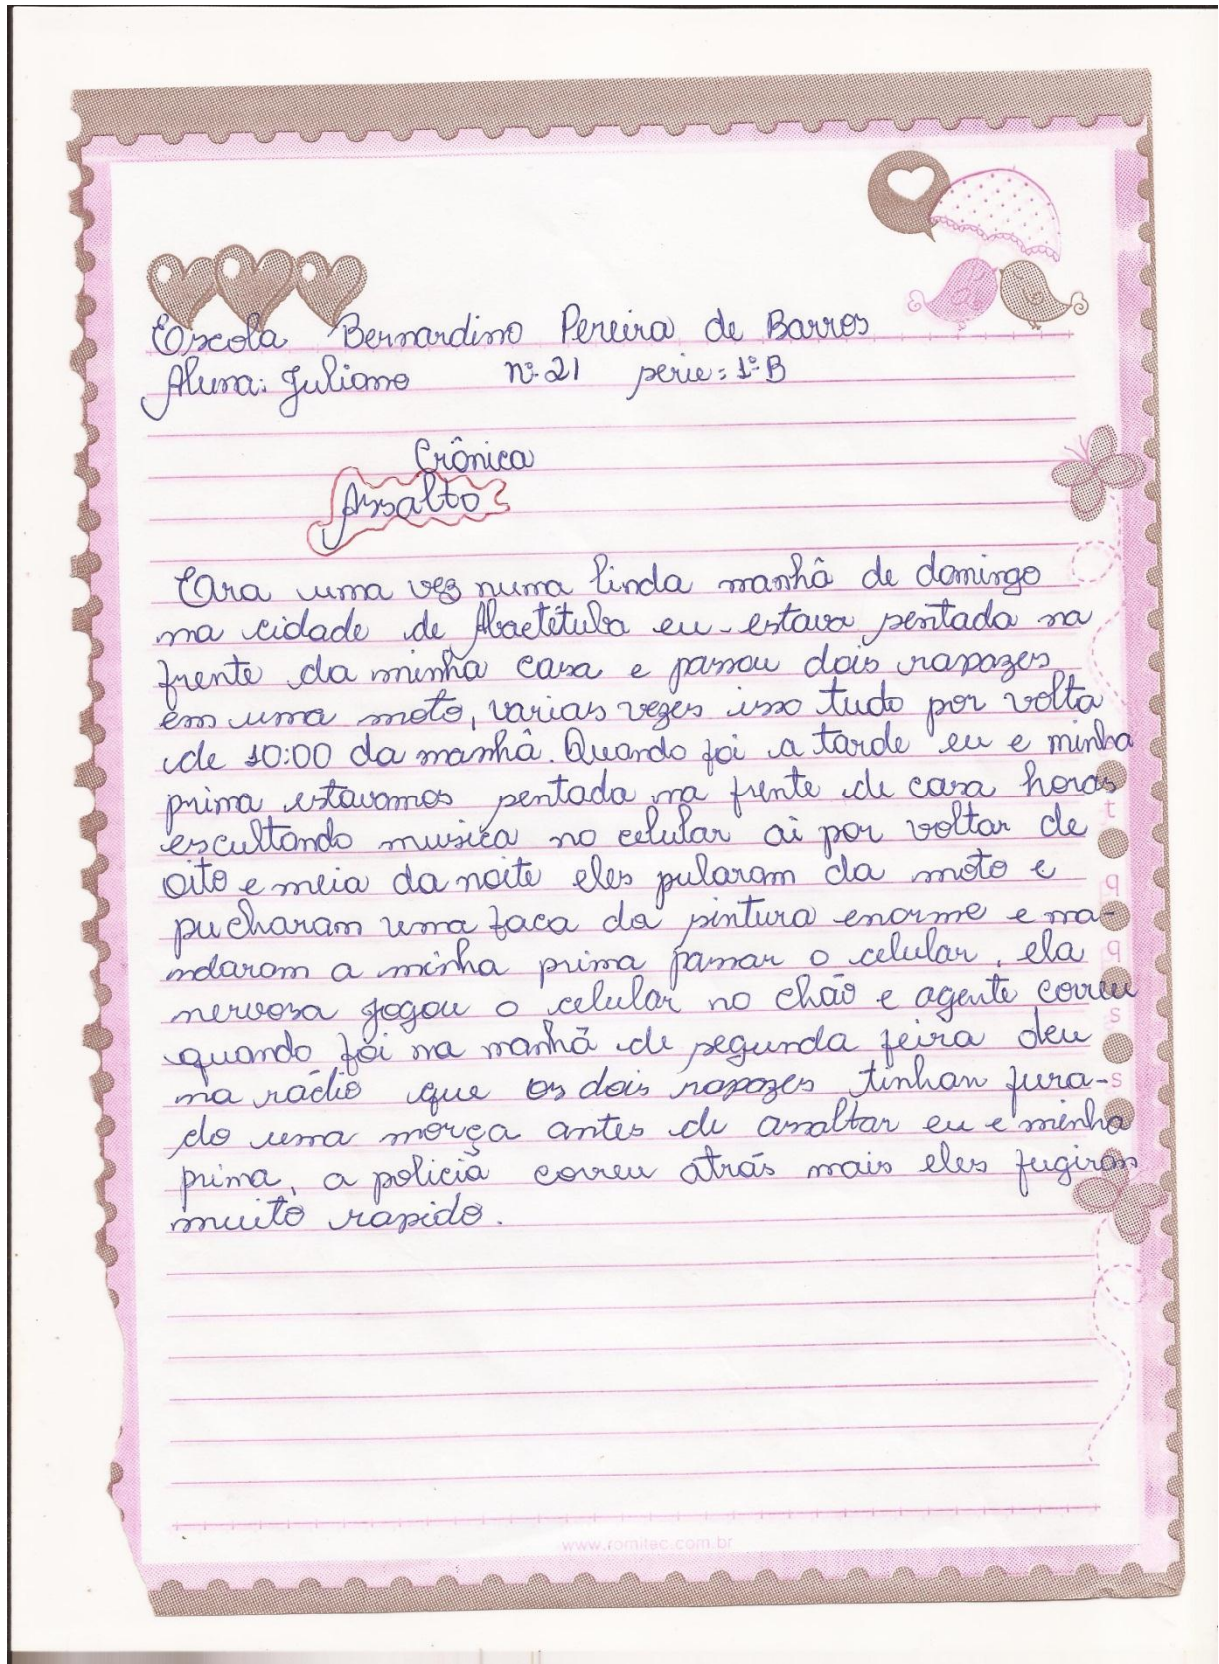 Escola Bernardino Pereira de Barros
Aluna: Juliana nº 21 serie: 1ª B
Crônica
Assalto
Era uma vez numa linda manhã de domingo
na cidade de Abaetetuba eu estava sentada na
frente da minha casa e passou dois rapazes
em uma moto, varias vezes isso tudo por volta
de 10:00 da manhã. Quando foi a tarde eu e minha
prima estavamos sentada na frente de casa horas
escultando musica no celular ai por voltar de
oito e meia da noite eles pularam da moto e
pucharam uma faca da sintura enorme e ma-
ndaram a minha prima passar o celular, ela
nervosa jogou o celular no chão e agente correu
quando foi na manhã de segunda feira deu
na rádio que os dois rapazes tinhan fura-
do uma morça antes de assaltar eu e minha
prima, a policia correu atrás mais eles fugiram
muito rapido.
www.romitec.com.br